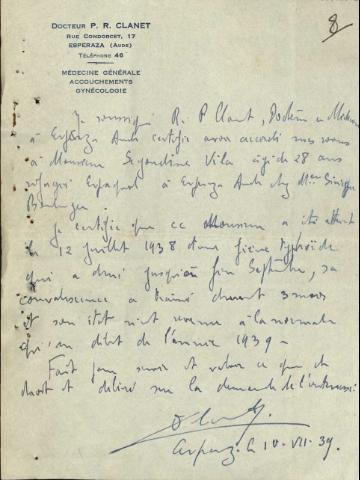 8
DOCTEUR P. R. CLANET
RUE CONDORCET, 17
ESPERAZA (AUDE)
TÉLÉPHONE 46
MÉDECINE GÉNÉRALE
ACCOUCHEMENTS
GYNÉCOLOGIE
Je soussigné R. P Clanet, Docteur en Médecine
à Esperaza Aude certifie avoir accordé mes soins
à Monsieur Segondine Vila âgé de 28 ans
réfugié Espagnol à Esperaza Aude chez Mme
Je certifie que ce Monsieur a été atteint
le 12 juillet 1938 d'une fièvre typhoïde
qui a duré jusqu'en fin Septembre, sa
convalescence a traîné durant 3 mois
et son état n'est revenu à la normale
qu'au début de l'année 1939 -
Fait pour servir et valoir ce que de
droit et délivré sur la demande de l'intéressé.
Esperaza le 10-VII-39.